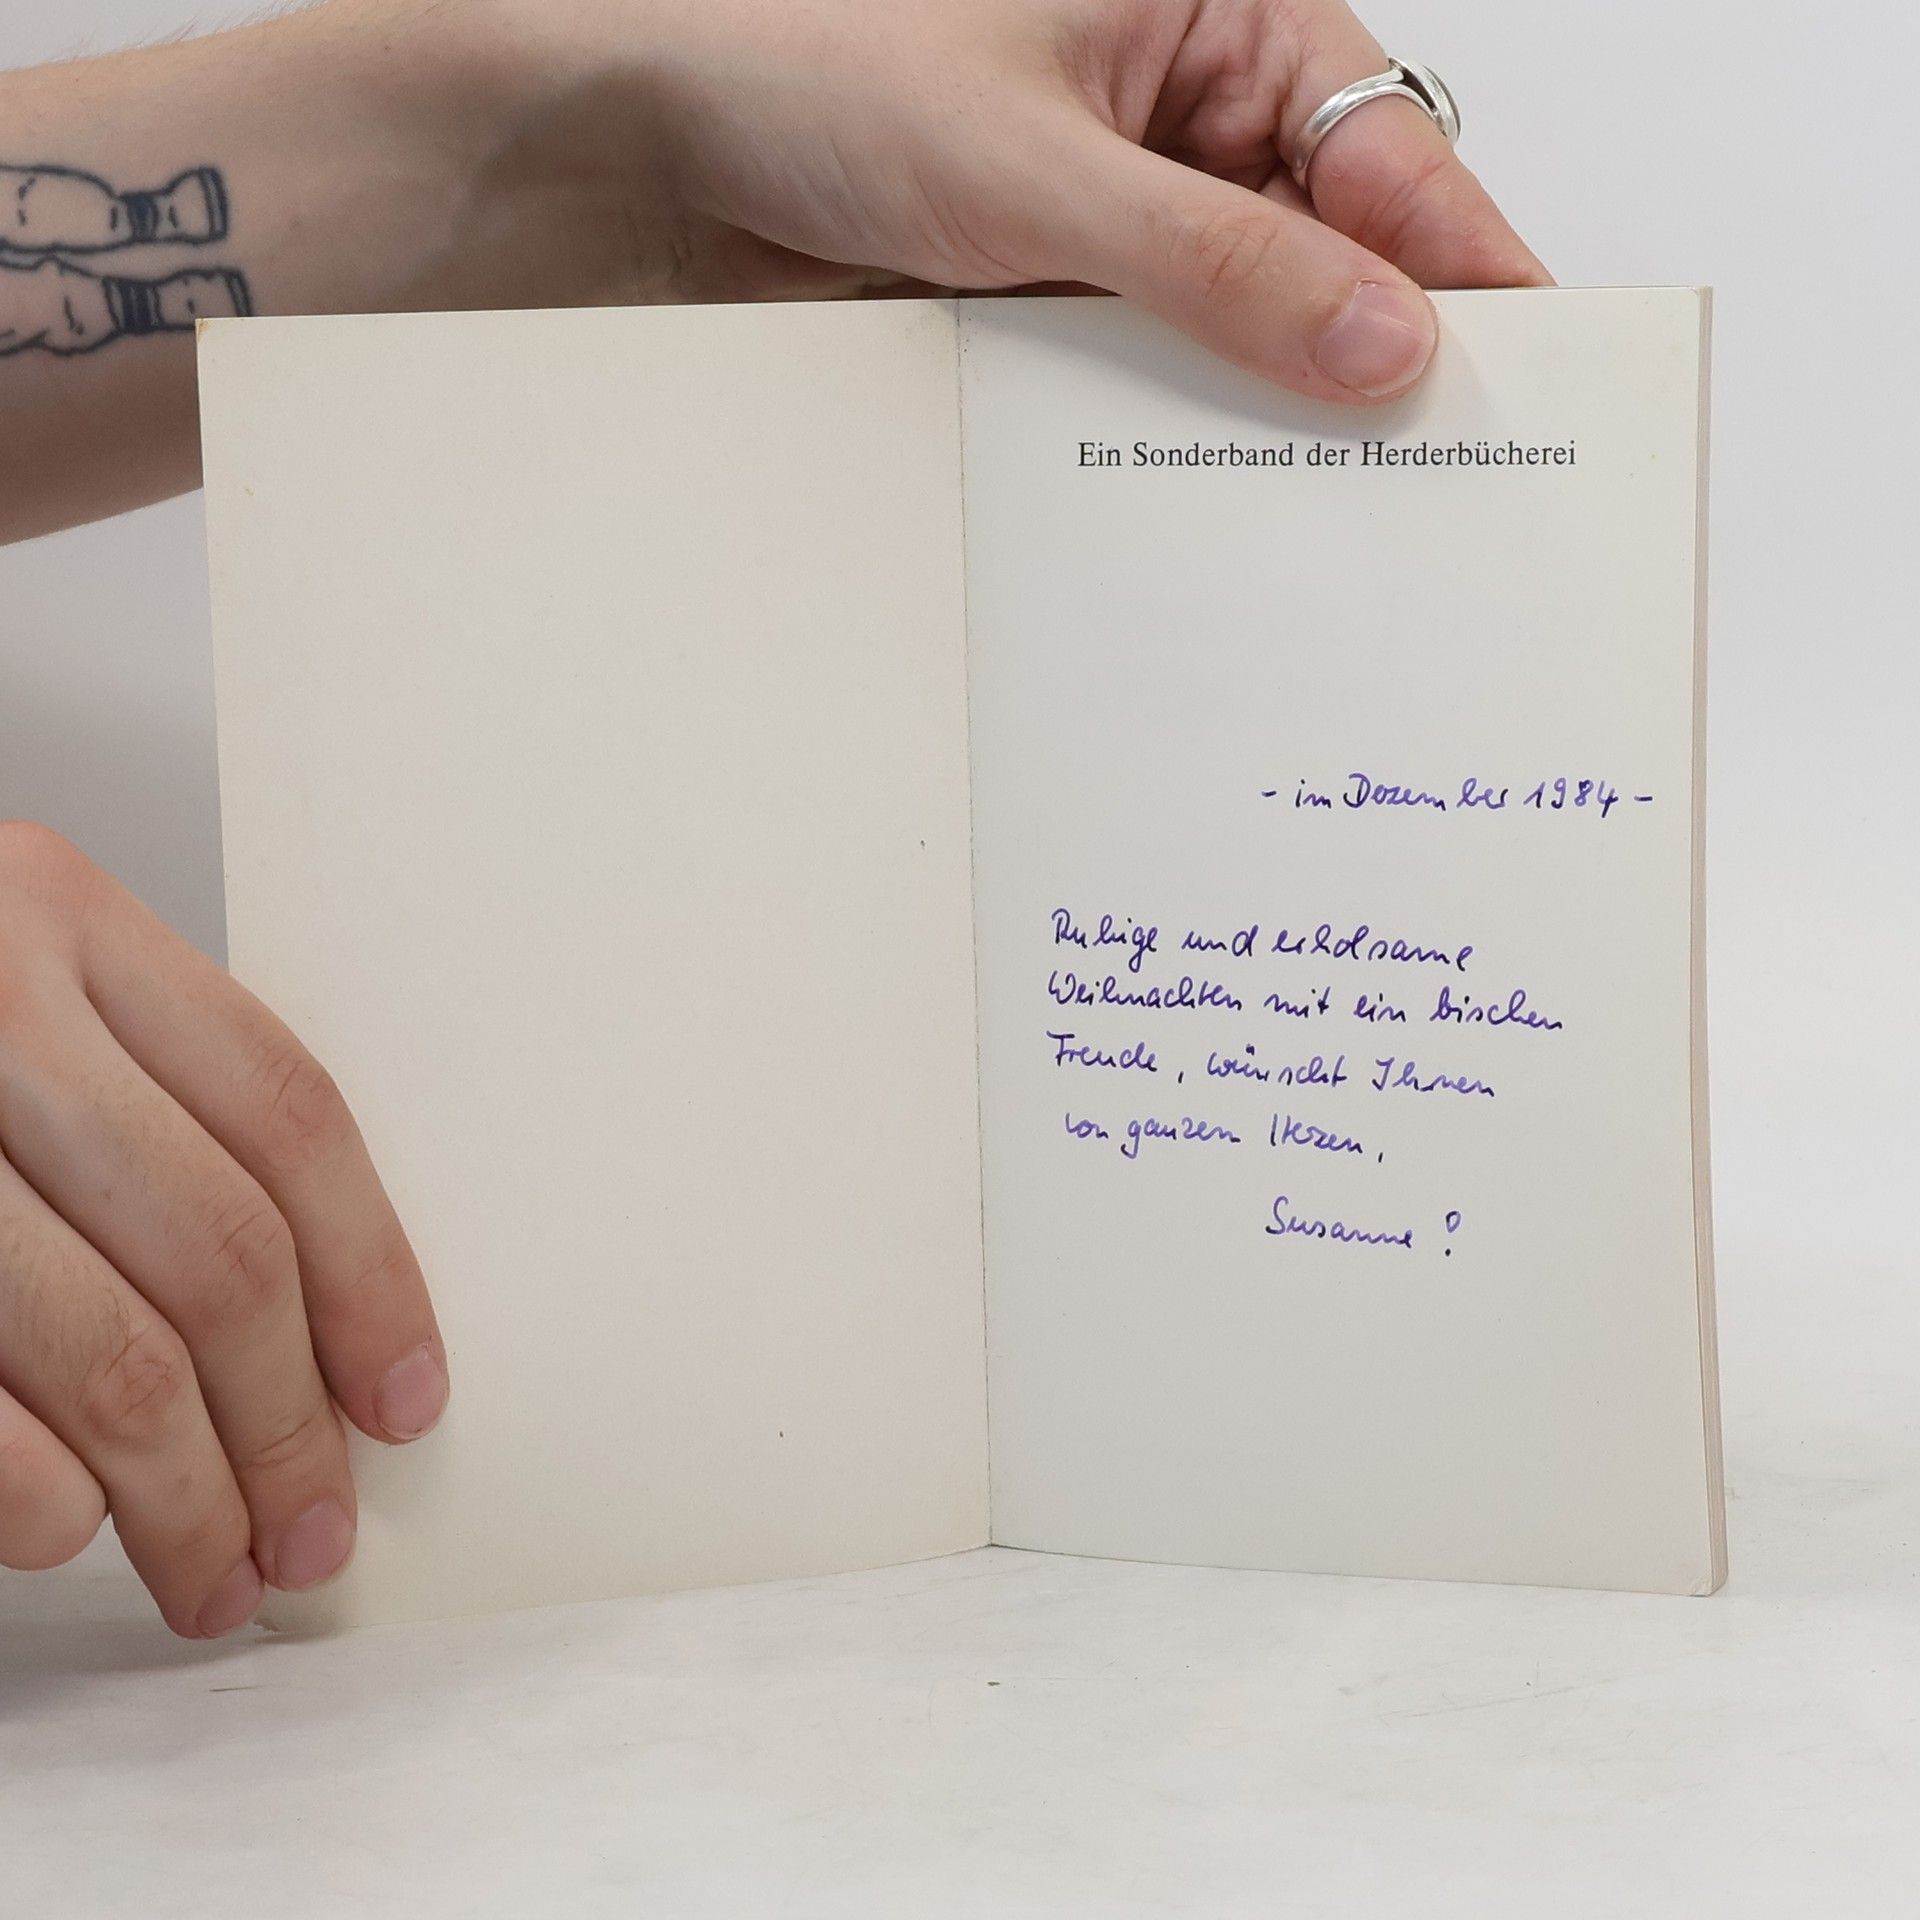 Ein Sonderband der Herderbücherei
- im Dezember 1984 -
Ruhige und erholsame
Weihnachten mit ein bischen
Freude, wünscht Ihnen
von ganzem Herzen,
Susanne !